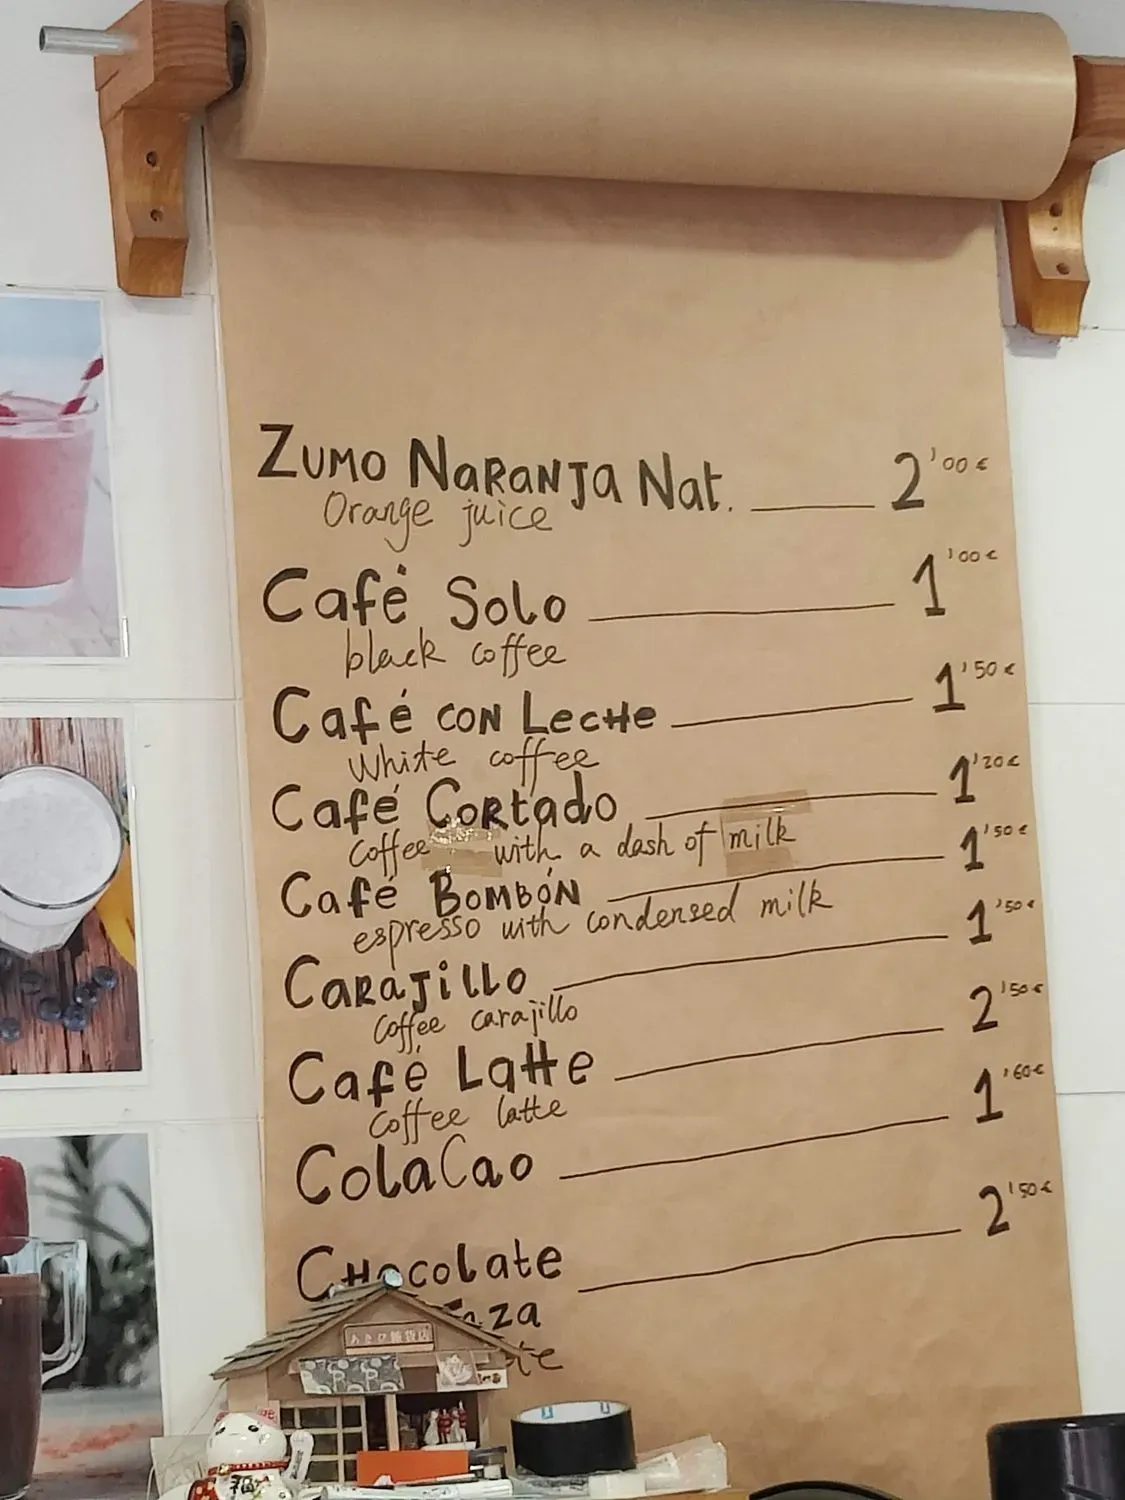 Zumo Naranja Nat. 2'00€
Orange juice
Café Solo 1'00€
black coffee
Café con Leche 1'50€
White coffee
Café Cortado 1'20€
Coffee with a dash of milk
Café Bombón 1'50€
espresso with condensed milk
Carajillo 1'50€
Coffee carajillo
Café Latte 2'50€
Coffee latte
ColaCao 1'60€
Chocolate 2'50€
福